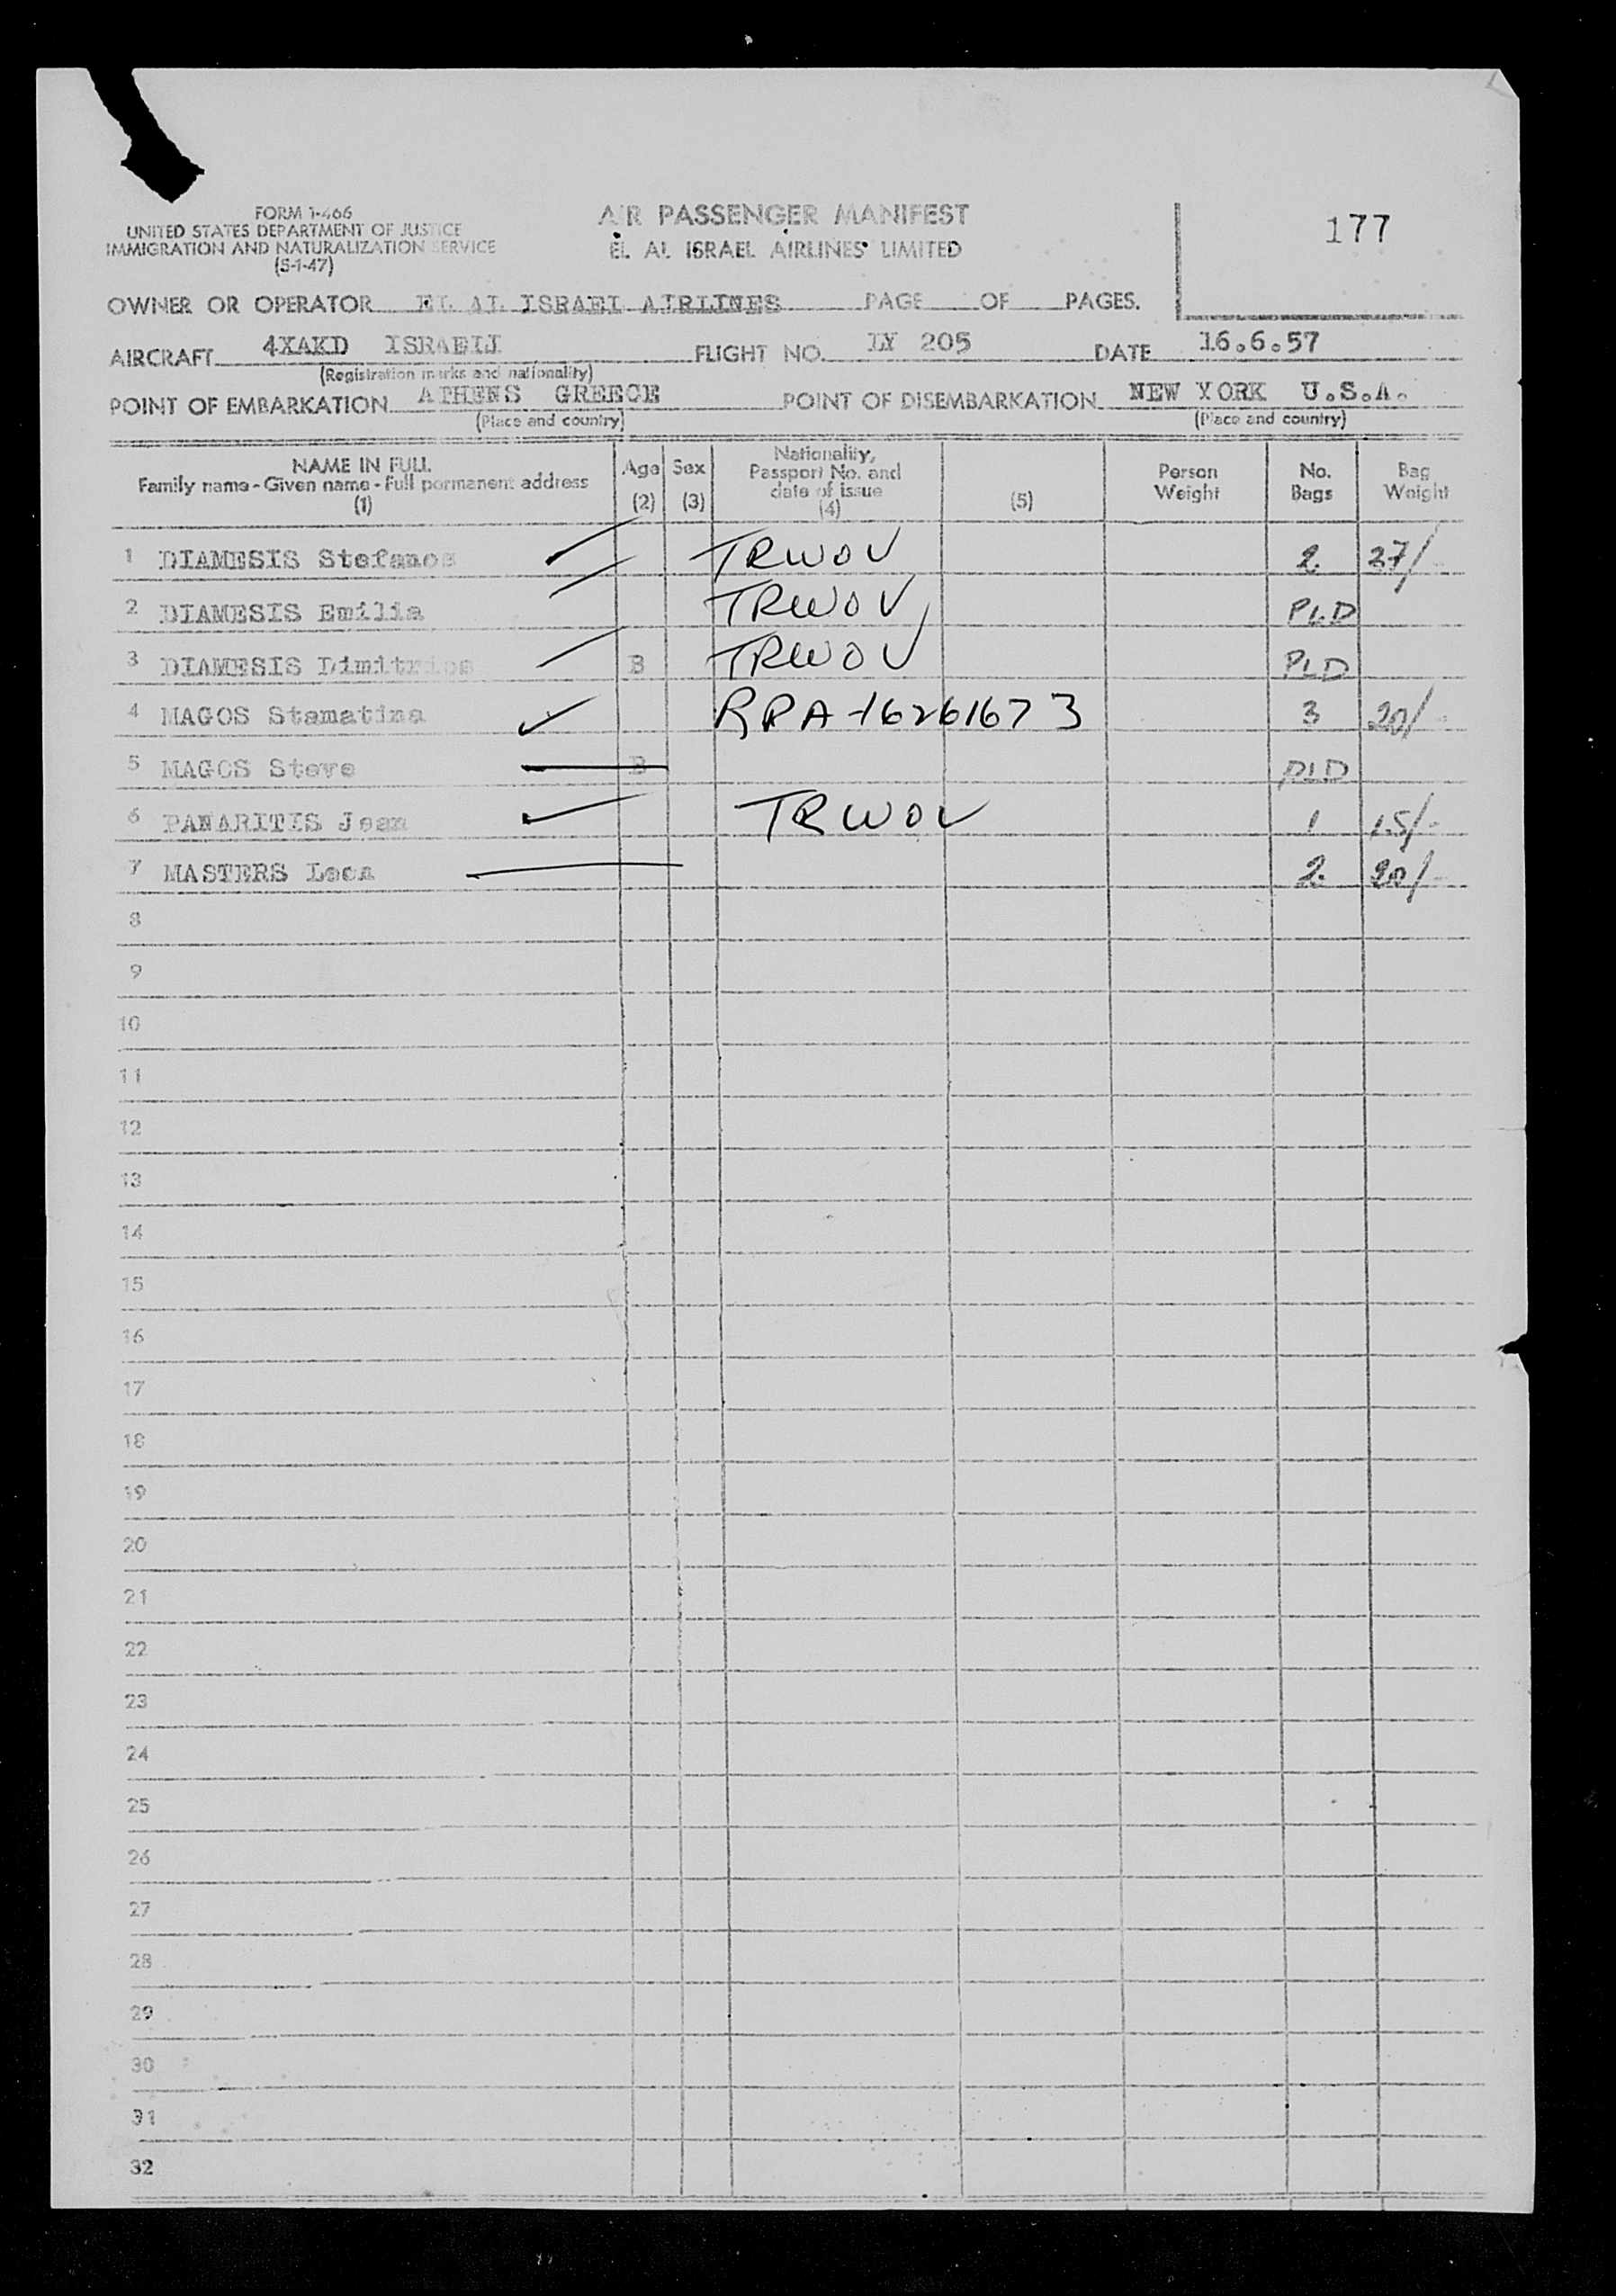 FORM I-466
UNITED STATES DEPARTMENT OF JUSTICE
IMMIGRATION AND NATURALIZATION SERVICE
(5-1-47)
AIR PASSENGER MANIFEST
EL AL ISRAEL AIRLINES LIMITED
177
OWNER OR OPERATOR EL AL ISRAEL AIRLINES PAGE OF PAGES.
AIRCRAFT 4XAKD ISRAELI FLIGHT NO. LY 205 DATE 16.6.57
(Registration marks and nationality)
POINT OF EMBARKATION ATHENS GREECE POINT OF DISEMBARKATION NEW YORK U.S.A.
(Place and country) (Place and country)
NAME IN FULL
Family name - Given name - Full permanent address
(1)
Age
(2)
Sex
(3)
Nationality,
Passport No. and
date of issue
(4)
(5)
Person
Weight
No.
Bags
Bag
Weight
1 DIAMESIS Stefanos TRWOV 2 37/-
2 DIAMESIS Emilia TRWOV PLD
3 DIAMESIS Dimitrios B TRWOV PLD
4 MAGOS Stamatina RPA-16261673 3 20/-
5 MAGOS Steve B PLD
6 PANARITIS Jean TRWOV 1 15/-
7 MASTERS 2 20/-
8
9
10
11
12
13
14
15
16
17
18
19
20
21
22
23
24
25
26
27
28
29
30
31
32